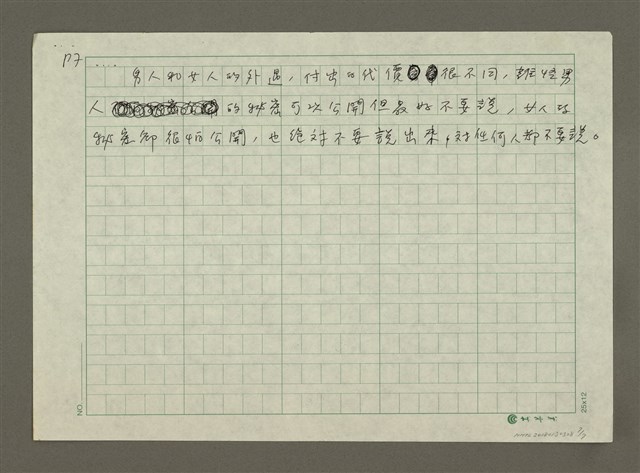 P7
男人和女人的外遇，付出的代價很不同，男
人的秘密可以公開但最好不要說，女人的
秘密卻很公開，也絕對不要說出來，對任何人都不要說。
NO.
25x12